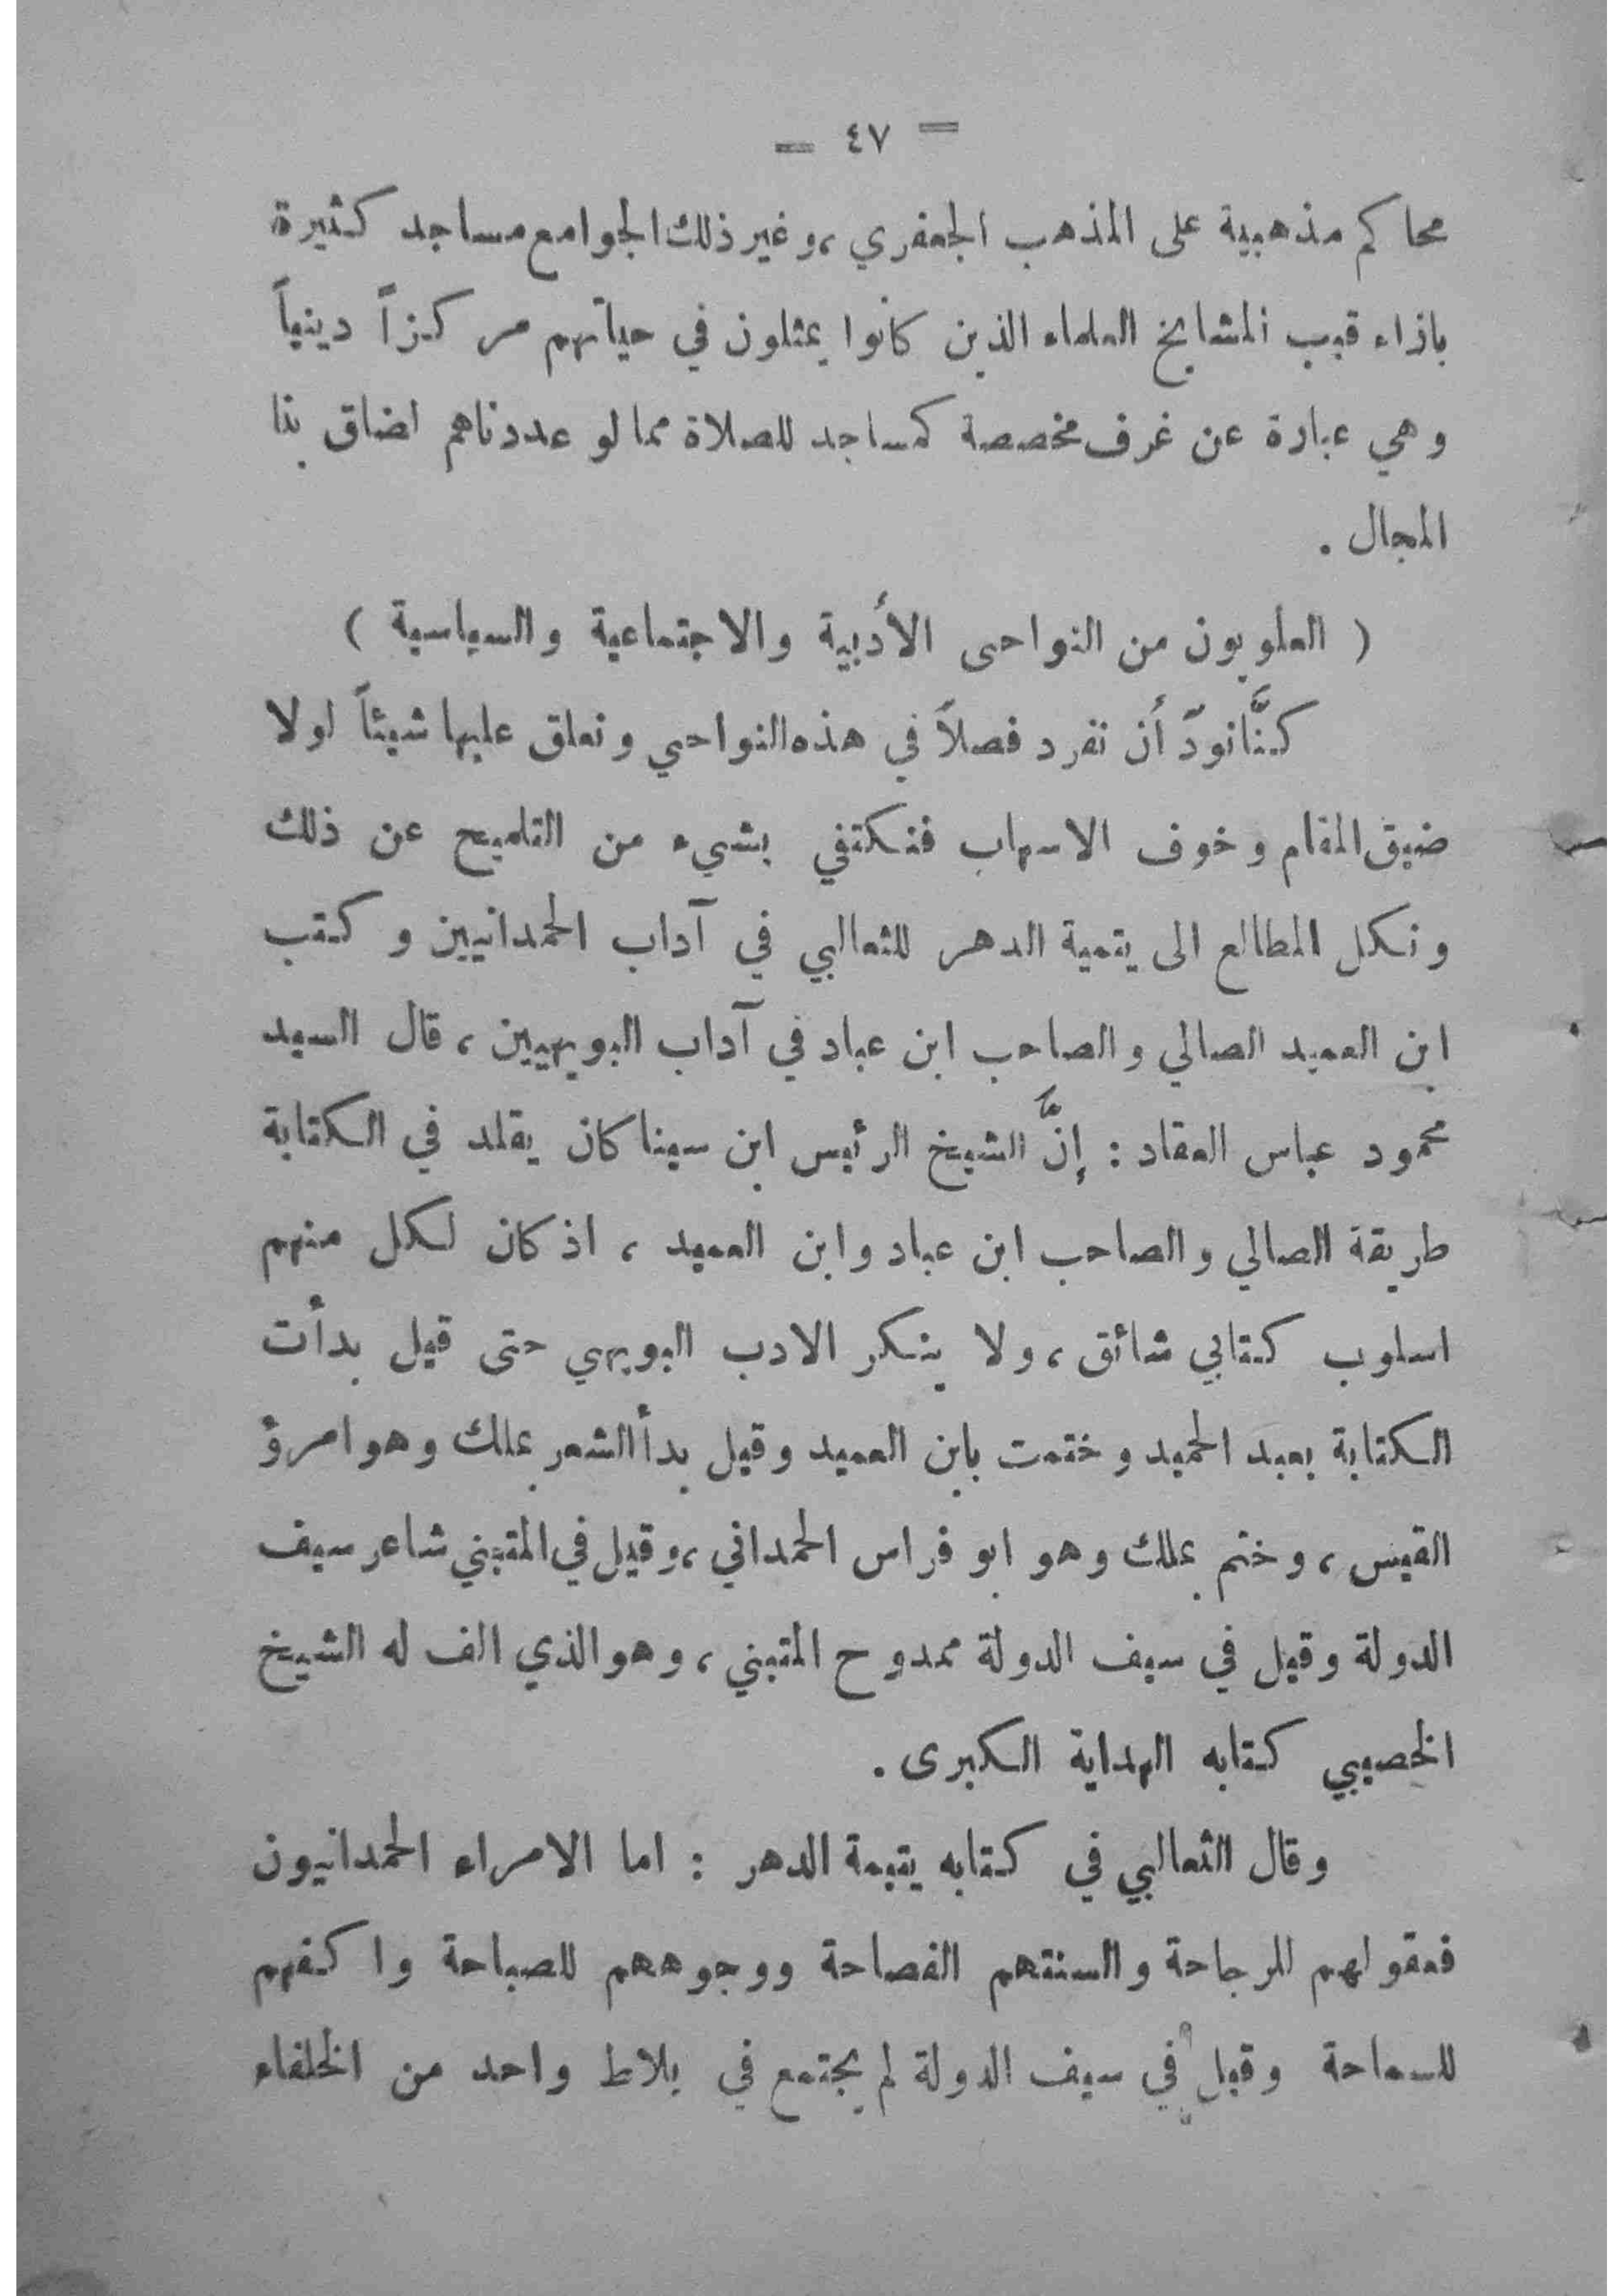 = ٤٧ =
محاكم مذهبية على المذهب الجعفري ، وغير ذلك الجوامع مساجد كثيرة
بازاء قبب المشايخ العلماء الذين كانوا يمثلون في حياتهم مركزاً دينياً
وهي عبارة عن غرف مخصصة كمساجد للصلاة مما لو عددناهم لضاق بنا
المجال .
( العلويون من النواحى الأدبية والاجتماعية والسياسية )
كنَّا نودّ أن نفرد فصلاً في هذه النواحي ونعلق عليها شيئاً لولا
ضيق المقام وخوف الاسهاب فنكتفي بشيء من التلميح عن ذلك
ونكل المطالع الى يتمية الدهر للثعالبي في آداب الحمدانيين وكتب
ابن العميد الصالي والصاحب ابن عباد في آداب البويهيين ، قال السيد
محمود عباس العقاد : إنَّ الشيخ الرئيس ابن سينا كان يقلد في الكتابة
طريقة الصالي والصاحب ابن عباد وابن العميد ، اذ كان لكل منهم
اسلوب كتابي شائق ، ولا ينكر الادب البويهي حتى قيل بدأت
الكتابة بعبد الحميد وختمت بابن العميد وقيل بدأ الشعر بملك وهو امرؤ
القيس ، وختم بملك وهو ابو فراس الحمداني ، وقيل في المتبني شاعر سيف
الدولة وقيل في سيف الدولة ممدوح المتبني ، وهو الذي الف له الشيخ
الخصيبي كتابه الهداية الكبرى .
وقال الثعالبي في كتابه يتيمة الدهر : اما الامراء الحمدانيون
فعقولهم للرجاحة والسنتهم الفصاحة ووجوههم للصباحة واكفهم
للسماحة وقيل في سيف الدولة لم يجتمع في بلاط واحد من الخلفاء